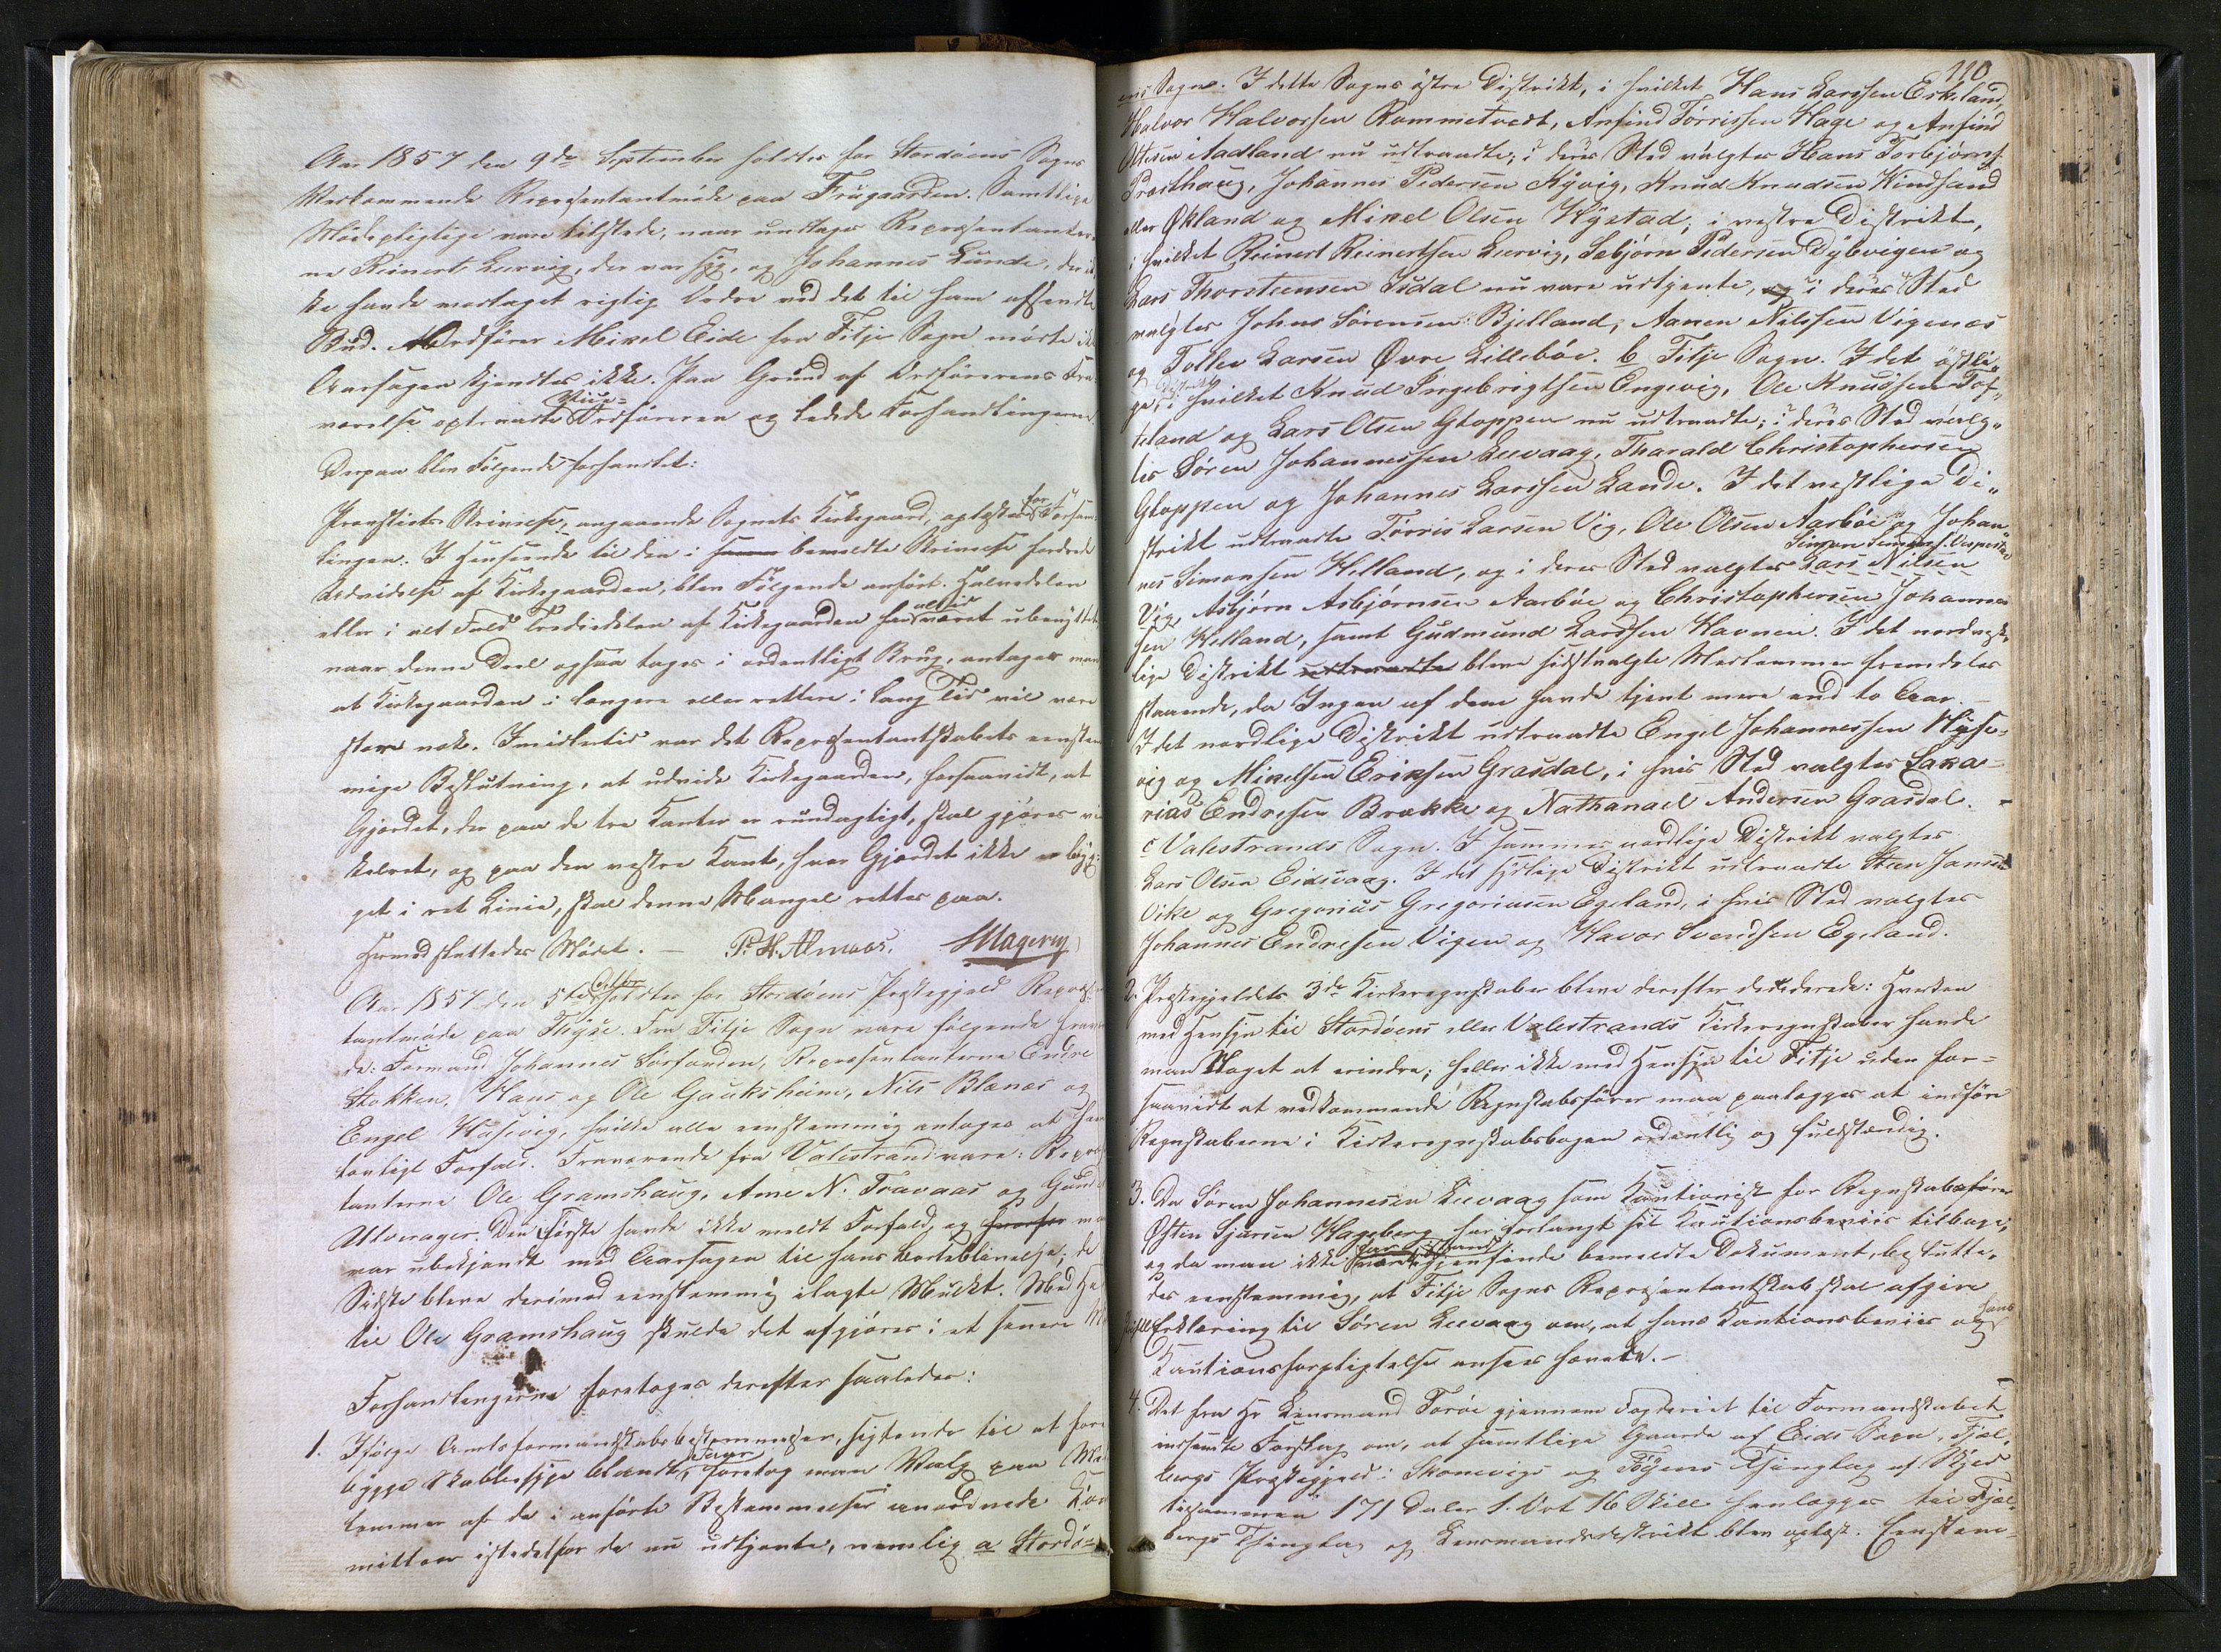 Aar 1857 den 9de September holdtes for Stordøens Sogns
Vedkommende Repræsentantmøde paa Frugaarden. Samtlige
Mødepligtige vare tilstede, naar undtages Repræsentanter-
ne Reinert Leervig, der var syg, og Johannes Lunde, der ik-
ke havde modtaget rigtig Ordre ved det til ham afsendte
Bud. Ordfører Mikel Eide fra Fitje Sogn mødte ik
Aarsagen kjendtes ikke. Paa Grund af Ordførerens Fra-
værelse optraadte Vice-Ordføreren og ledede Forhandlingerne.
Derpaa blev Følgende forhandlet:
Provstiets Skrivelse, angaaende Sognets Kirkegaard, oplæstes for Forsam-
lingen. I Henseende til den i samme bemeldte Skrivelse fordrede
Udvidelse af Kirkegaarden, blev Følgende anført. Halvdelen
eller i alt Fald Trediedelen af Kirkegaarden har altid været ubenyttet,
naar denne Deel ogsaa tages i ordentligt Brug, antages man
at Kirkegaarden i længere eller rettere i lang Tid vil være
stor nok. Imidlertid var det Repræsentantskabets eenstem
mige Beslutning, at udvide Kirkegaarden, forsaavidt, at
Gjerdet, der paa de tre Kanter er rundagtigt, skal gjøres vin
kelret, og paa den vestre Kant, hvor Gjerdet ikke er byg-
get i ret Linie, skal denne Mangel rettes paa.
Hermed sluttedes Mødet. — P. H. Almaas. Magerøy
Aar 1857 den 5te Octbr holdtes for Stordøens Præstegjeld Repræsen
tantmøde paa Thyse. Fra Fitje Sogn vare følgende fraværen
de: Formand Johannes Sørfonden, Repræsentanterne Endre
Stokken, Hans og Ole Gauksheim, Nils Blænæs og
Engel Husevig, hvilke alle eenstemmig antages at have
lovligt Forfald. Fraværende fra Valestrand vare: Repræsen
tanterne Ole Gramshaug, Arne N. Travaas og Gund
Utvaager. Den Første havde ikke meldt Forfald, og hvorfor ma
var ubekjendt med Aarsagen til hans Borteblivelse; de
Sidste bleve derimod eenstemmig ilagte Mulkt. Med He
til Ole Gramshaug skulde det afgjøres i et senere M
Forhandlingerne foretoges derefter saaledes:
1. Ifølge Amtsformandskabsbestemmelser, sigtende til at fore
bygge Skabbesyge blandt Faar, foretog man Valg paa Med
lemmer af de i anførte Bestemmelser anordnede Kom
mitteer istedetfor de nu udtjente, nemlig a Stordø-
110
ens Sogn. I dette Sogns østre Distrikt, i hvilket Hans Larssen Eskeland,
Halvor Halvorsen Rommetvedt, Anfind Tørrissen Hage og Anfind
Ottesen Aadland nu udtraadte; i deres Sted valgtes Hans Torbjørns.
Præsthaug, Johannes Pedersen Kyvig, Knud Knudsen Hindsand
eller Økland og Mikel Olsen Hystad; i vestre Distrikt,
i hvilket Reinert Reinertsen Leervig, Sebjørn Pedersen Dybvigen og
Lars Thorsteensen Isdal nu vare udtjente, og i deres Sted
valgtes Johns Sørensen Bjelland, Aanen Nilssen Vigenæs
og Tollev Larsen Øvre Lillebøe. b Fitje Sogn. I det østli-
ge Distrikt, i hvilket Knud Ingebrigtsen Engevig, Ole Knudsen Tof-
teland og Lars Olsen Gloppen nu udtraadte; i deres Sted valg-
tes Søren Johannessen Leevaag, Tharald Christophersen
Gloppen og Johannes Larssen Lande. I det vestlige Di-
strikt udtraadte Tørris Larsen Vig, Ole Olsen Aarbøe og Johan-
nes Simonsen Helland, og i deres Sted valgtes Lars Nilsen Simon Simons. Vespestad
Vig, Asbjørn Asbjørnsen Aarbøe og Christophersen Johannes
sen Helland, samt Gudmund Larssen Havnen. I det nordvest-
lige Distrikt udtraadte bleve sidstvalgte Medlemmer fremdeles
staaende, da Ingen af dem havde tjent mere end to Aar.
I det nordlige Distrikt udtraadte Engel Johannessen Huse-
vig og Mikelsen Eriksen Grasdal, i hvis Sted valgtes Saka-
rias Endresen Brække og Nathanael Andersen Grasdal.
c Valestrands Sogn. I sammes nordlige Distrikt valgtes
Lars Olsen Eidsvaag. I det sydlige Distrikt udtraadte Steen Jansen
Vike og Gregorius Gregoriusen Egeland, i hvis Sted valgtes
Johannes Endresen Vigen og Havor Svendsen Egeland.
2. Præstegjeldets 3de Kirkeregnskaber bleve derefter deciderede: Hverken
med Hensyn til Stordøens eller Valestrands Kirkeregnskaber havde
man Noget at erindre; heller ikke med Hensyn til Fitje uden for-
saavidt at vedkommende Regnskabsfører maa paalægges at indføre
Regnskaberne i Kirkeregnskabsbogen ordentlig og fuldstændig.
3. Da Søren Johannesen Leevaag som Kautionist for Regnskabsfører
Østen Sjursen Hageberg har forlangt sit Kautionsbeviis tilbage,
og da man ikke har istand gjenfinde bemeldte Dokument, beslutte-
des eenstemmig, at Fitje Sogns Repræsentantskab skal afgive
Erklæring til Søren Leevaag om, at hans Kautionsbeviis og hans
Kautionsforpligtelse ansees hævede. —
4. Det fra Hr Lensmand Torøe gjennem Fogderiet til Formandskabet
indsendte Forslag om, at samtlige Gaarde af Eids Sogn, Fjel-
bergs Præstegjeld i Skonevigs og Føyens Thinglag af Skyld
tilsammen 171 Daler 1 Ort 16 Skill henlægges til Fjel-
bergs Thinglag og Lensmandsdistrikt blev oplæst. Eenstem-